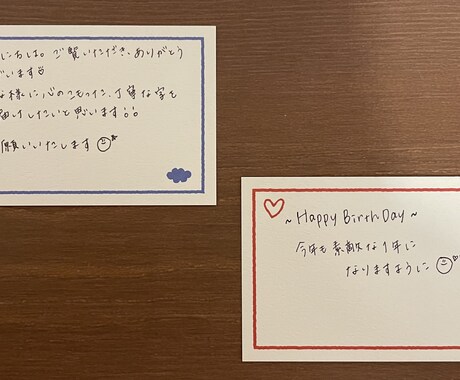 にちは。ご覧いただき、ありがとう
ざいます
な様に心のこもった、丁寧な字を
届けしたいと思います!!
願いいたします
~Happy BirthDay~
今年も素敵な1年に
なりますように